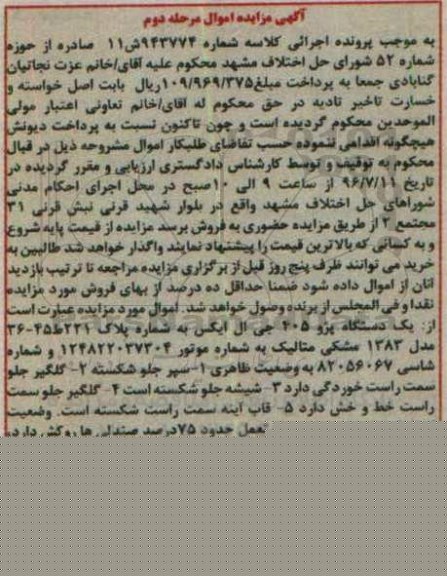 آگهی مزایده اموال مرحله دوم
به موجب پرونده اجرائی کلاسه شماره ۹۴۳۷۷۴ش۱۱ صادره از حوزه
شماره ۵۲ شورای حل اختلاف مشهد محکوم علیه آقای/خانم عزت نجاتیان
گنابادی جمعا به پرداخت مبلغ۱۰۹/۹۶۹/۳۷۵ریال بابت اصل خواسته و
خسارت تاخیر تادیه در حق محکوم له آقای/خانم تعاونی اعتبار مولی
الموحدین محکوم گردیده است و چون تاکنون نسبت به پرداخت دیونش
هیچگونه اقدامی ننموده حسب تقاضای طلبکار اموال مشروحه ذیل در قبال
محکوم به توقیف و توسط کارشناس دادگستری ارزیابی و مقرر گردیده در
تاریخ ۹۶/۷/۱۱ از ساعت ۹ الی ۱۰صبح در محل اجرای احکام مدنی
شوراهای حل اختلاف مشهد واقع در بلوار شهید قرنی نبش قرنی ۳۱
مجتمع ۲ از طریق مزایده حضوری به فروش برسد مزایده از قیمت پایه شروع
و به کسانی که بالاترین قیمت را پیشنهاد نمایند واگذار خواهد شد طالبین به
خرید می توانند ظرف پنج روز قبل از برگزاری مزایده مراجعه تا ترتیب بازدید
آنان از اموال داده شود ضمنا حداقل ده درصد از بهای فروش مورد مزایده
نقدا و فی المجلس از برنده وصول خواهد شد. اموال مورد مزایده عبارت است
از: یک دستگاه پژو ۴۰۵ جی ال ایکس به شماره پلاک ۲۲۱ط۴۵-۳۶
مدل ۱۳۸۳ مشکی متالیک به شماره موتور ۱۲۴۸۲۲۰۳۷۳۰۴ و شماره
شاسی ۸۲۰۵۶۰۶۷ به وضعیت ظاهری ۱-سپر جلو شکسته ۲- گلگیر جلو
سمت راست خوردگی دارد ۳- شیشه جلو شکسته است ۴- گلگیر جلو سمت
راست خط و خش دارد ۵- قاب آینه سمت راست شکسته است. وضعیت
حدود ۷۵درصد صندلی ها روکش دارد